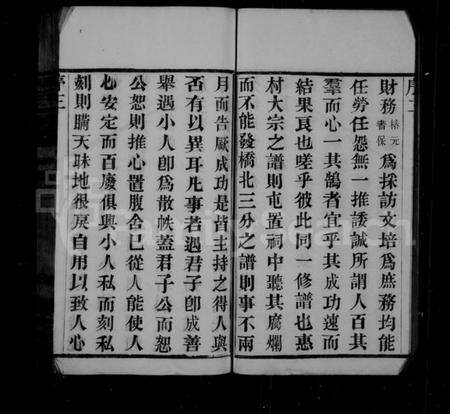 序三
財務 裕元 書保 為採訪文培為庶務均能
任勞任怨無一推諉誠所謂人百其
羣而心一其鵠者宜乎其成功速而
結果良也嗟乎彼此同一修譜也惠
村大宗之譜則屯置祠中聽其腐爛
而不能發橋北三分之譜則事不兩
月而告厥成功是皆主持之得人與
否有以異耳凡事若遇君子卽成善
舉遇小人卽為散帙蓋君子公而恕
公恕則推心置腹舍已從人能使人
心安定而百廢俱興小人私而刻私
刻則瞞天昧地很戾自用以致人心
序三